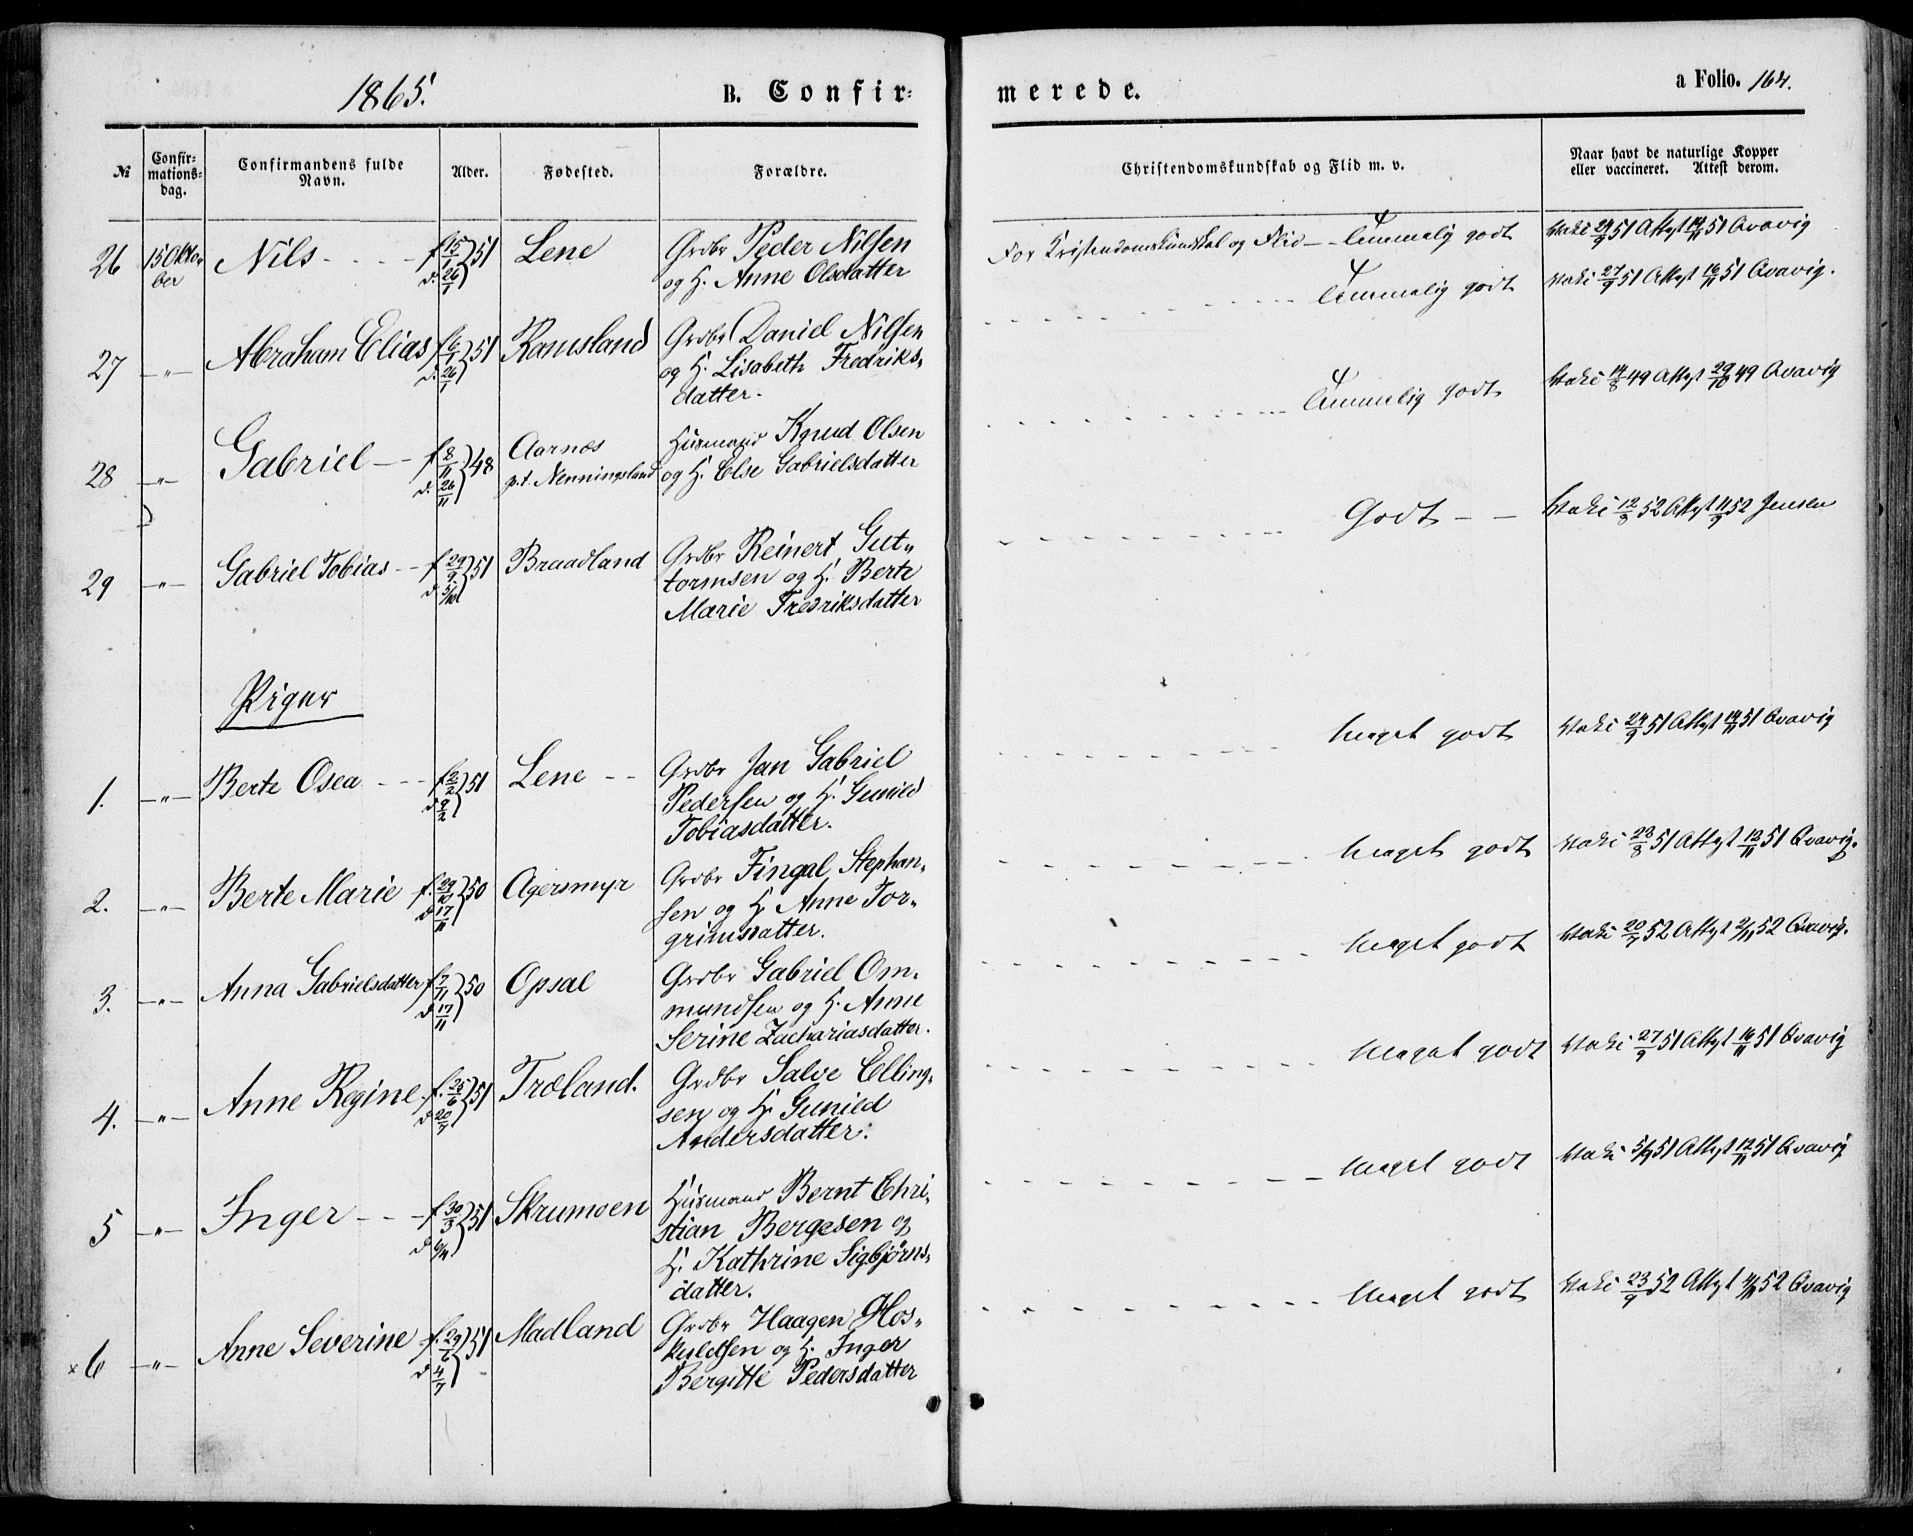 1865.
B. Confir-
merede.
a Folio. 164.
№
Confir-
mations-
dag.
Confirmandens fulde
Navn.
Alder.
Fødested.
Forældre.
Christendomskundskab og Flid m. v.
Naar havt de naturlige Kopper
eller vaccineret. Attest derom.
26 15 Okto-
ber
Nils - - - - f 15/1 51
d. 26/1
Lene
Grdbr Peder Nilsen
og H. Anne Olsdatter
For Kristendomskundskab og Flid - - Temmelig godt
Vaki 24/9 51 Attest 14/11 51 Qvavig
27 -"- Abraham Elias f 6/1 51
d. 26/1
Ramsland
Grdbr Daniel Nilsen
og H. Lisabeth Fredriks-
datter.
Temmelig godt
Vaki 27/9 51 Attest 16/11 51 Qvavig.
28 -"- Gabriel - f 8/11 48
d. 26/11
Aarnæs
p.t. Nenningsland
Husmand Knud Olsen
og H. Else Gabrielsdatter
Temmelig godt
Vaki 14/8 49 Attest 29/10 49 Qvavig
29 -"- Gabriel Tobias - - f 29/9 51
d. 5/10
Braadland
Grdbr Reinert Gut-
tormsen og H. Berte
Marie Fredriksdatter
Godt - -
Vaki 12/8 52 Attest 11/9 52 Jensen
Piger
1. -"- Berte Osea - - - f 2/2 51
d 9/2
Lene - -
Grdbr Jan Gabriel
Pedersen og H. Gunild
Tobiasdatter.
Meget godt
Vaki 24/9 51 Attest 14/11 51 Qvavig
2. -"- Berte Marie f. 29/10 50
d 17/11
Agersmyr
Grdbr Fingal Stephan-
sen og H. Anne Tor-
grimsdatter.
Meget godt
Vaki 23/8 51 Attest 12/11 51 Qvavig.
3. -"- Anna Gabrielsdatter f 7/11 50
d 17/11
Opsal
Grdbr Gabriel Om-
mundsen og H. Anne
Serine Zachariasdatter.
Meget godt
Vaki 20/7 52 Attest 2/11 52 Qvavig.
4. -"- Anne Regine f. 25/6 51
d 20/7
Træland.
Grdbr Salve Elling-
sen og H. Gunild
Andersdatter.
Meget godt
Vaki 27/9 51 Attest 16/11 51 Qvavig
5 -"- Inger - - - f 30/3 51
d 6/4
Skrumoen
Husmand Bernt Chri-
stian Bergesen og
H. Kathrine Sigbjørns-
datter.
Meget godt
Vaki 5/9 51 Attest 12/11 51 Qvavig
× 6 -"- Anne Severine f. 29/6 51
d 4/7
Madland
Grdbr Haagen Hos-
kuldsen og H. Inger
Bergitte Pedersdatter
Meget godt
Vaki 23/9 52 Attest 2/11 52 Qvavig